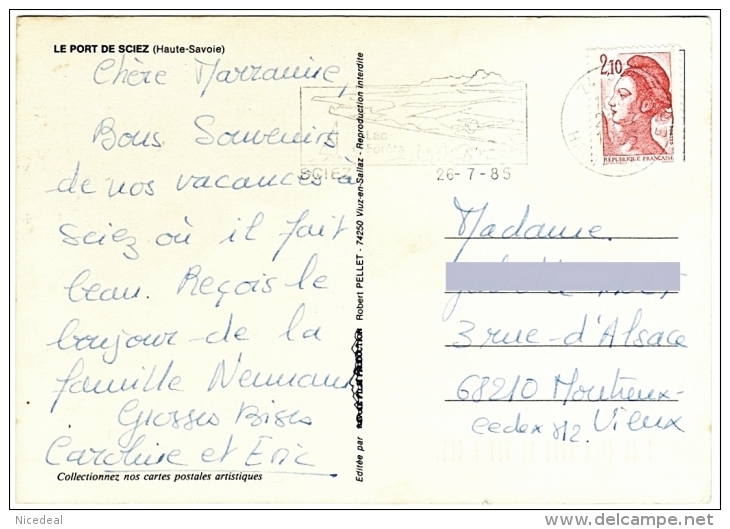 LE PORT DE SCIEZ (Haute-Savoie)
Chère Marraine,
Bons Souvenirs
de nos vacances à
Sciez où il fait
beau. Reçois le
bonjour de la
famille Neumann
Grosses Bises
Caroline et Eric
Collectionnez nos cartes postales artistiques
Editée par
Robert PELLET - 74250 Viuz-en-Sallaz - Reproduction interdite
Lac
Forêts
SCIEZ
26-7-85
2,10
REPUBLIQUE FRANÇAISE
Madame
3 rue d'Alsace
68210 Montreux-
Vieux
cedex 812.
Nicedeal
www.delcampe.net